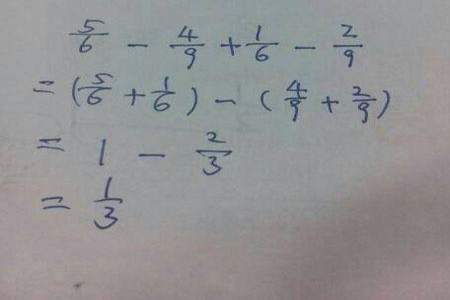 5/6 - 4/9 + 1/6 - 2/9
= (5/6 + 1/6) - (4/9 + 2/9)
= 1 - 2/3
= 1/3